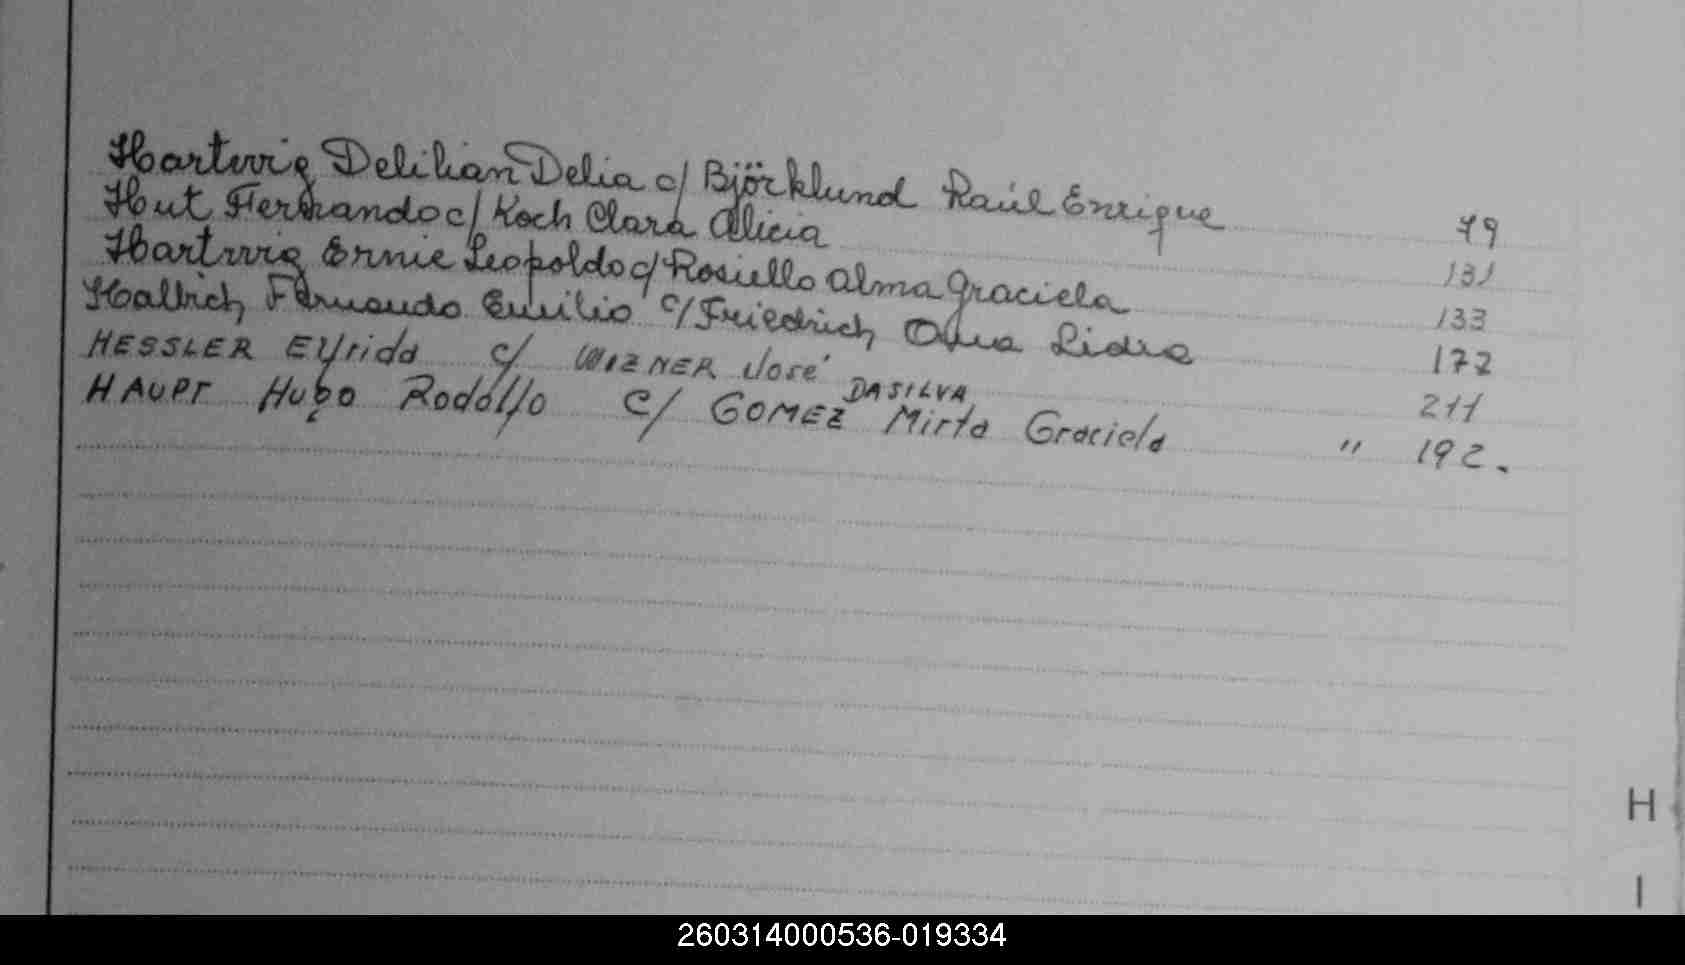 Hartwig Delilian Delia c/ Björklund Raúl Enrique 79
Hut Fernando c/ Koch Clara Alicia 131
Hartwig Ernie Leopoldo c/ Rosiello Alma Graciela 133
Hallrich Fernando Emilio c/ Friedrich Olga Lidia 177
HESSLER Elfrida c/ WIZNER José 211
DASILVA
HAUPT Hugo Rodolfo c/ GOMEZ Mirta Graciela " 192.
H
I
260314000536-019334